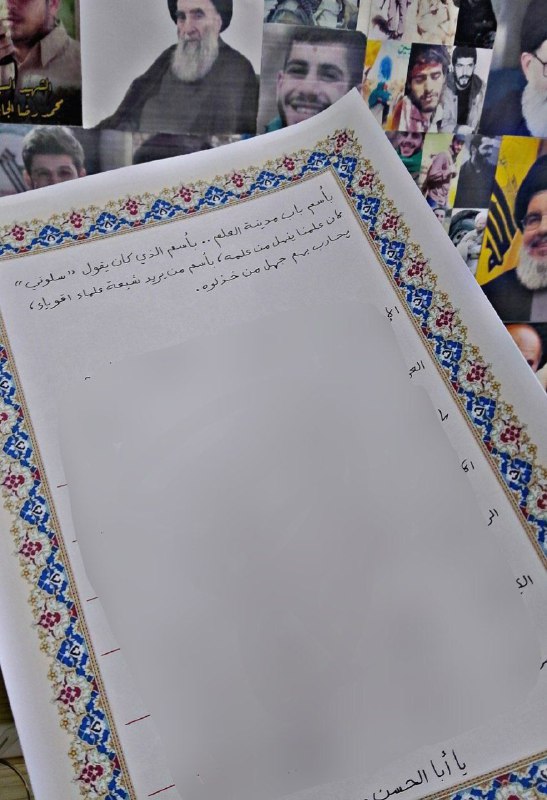 الشهيد السـ
محمد رضا الجا
الله
بأسم باب مدينة العلم .. بأسم الذي كان يقول "سلوني"
كأن علمنا ينهل من علمه، بأسم من يريد شيعة علماء اقوياء،
يحارب بهم جهل من خذلوه.
الإ
العر
الر
يا أبا الحسن